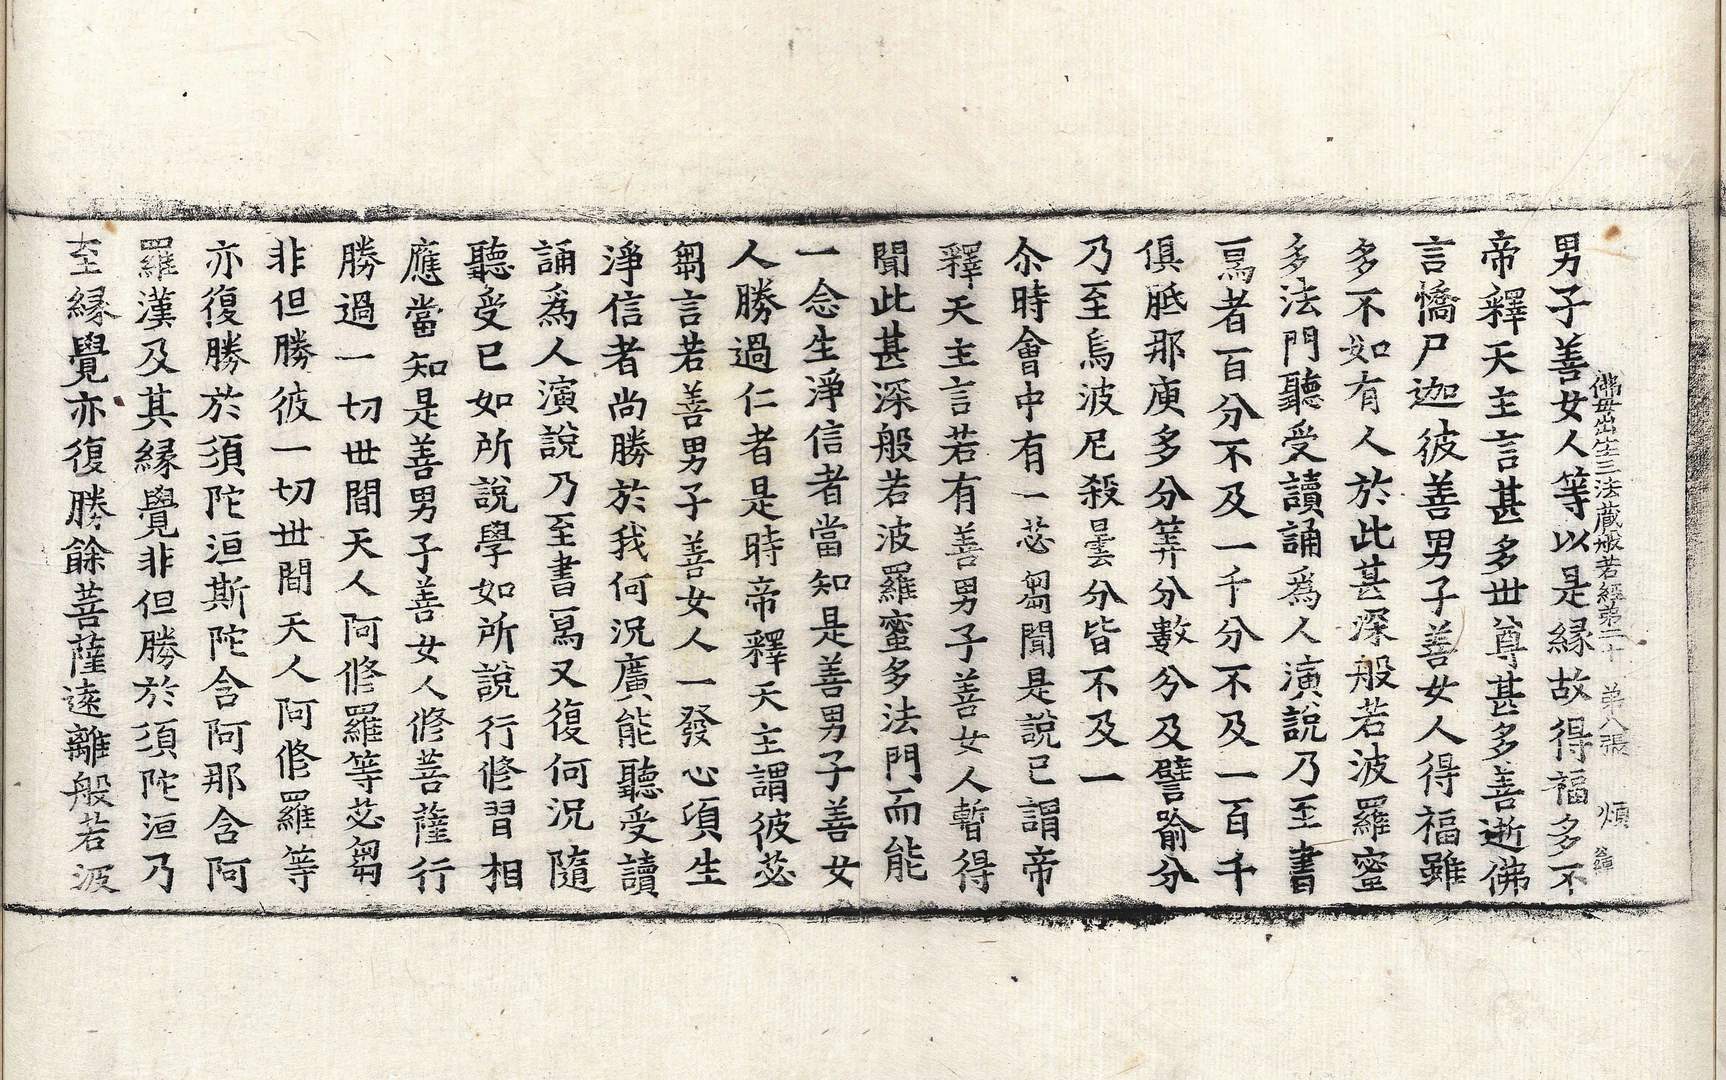 佛毋出生三法藏般若經弟二十 弟八張 煩
男子善女人等以是緣故得福多不
帝釋天主言甚多世尊甚多善逝佛
言憍尸迦彼善男子善女人得福雖
多不如有人於此甚深般若波羅蜜
多法門聽受讀誦爲人演說乃至書
寫者百分不及一千分不及一百千
俱胝那庾多分筭分數分及譬喻分
乃至烏波尼殺曇分皆不及一
尒時會中有一苾芻聞是說已謂帝
釋天主言若有善男子善女人暫得
聞此甚深般若波羅蜜多法門而能
一念生淨信者當知是善男子善女
人勝過仁者是時帝釋天主謂彼苾
芻言若善男子善女人一發心頃生
淨信者尚勝於我何況廣能聽受讀
誦爲人演說乃至書寫又復何況隨
聽受已如所說學如所說行修習相
應當知是善男子善女人修菩薩行
勝過一切世間天人阿修羅等苾芻
非但勝彼一切世間天人阿修羅等
亦復勝於須陀洹斯陀含阿那含阿
羅漢及其緣覺非但勝於須陀洹乃
至緣覺亦復勝餘菩薩遠離般若波